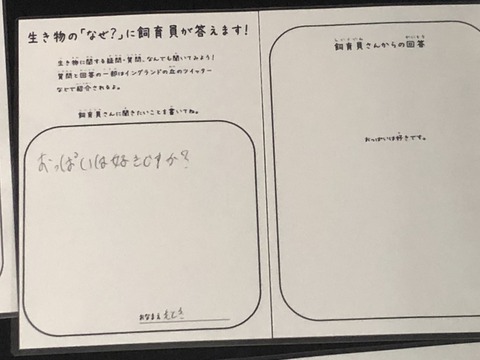 生き物の「なぜ?」に飼育員が答えます!
生き物に関する疑問・質問、なんでも聞いてみよう!
質問と回答の一部はイングランドの丘のツイッター
などで紹介されるよ。
飼育員さんに聞きたいことを書いてね。
おっぱいは好きですか?
おなまえ
しいくいん かいとう
飼育員さんからの回答
おっぱいは好きです。